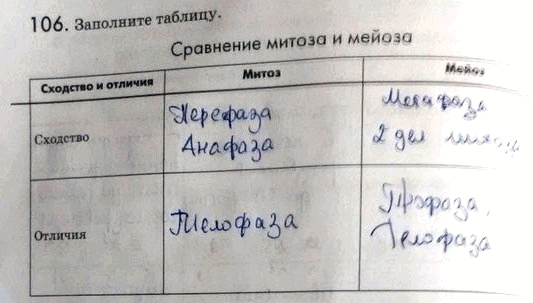 106. Заполните таблицу.
Сравнение митоза и мейоза
Сходство и отличия Митоз Мейоз
Сходство
Анафаза
2 дел
Отличия
Телофаза
Профаза,
Телофаза